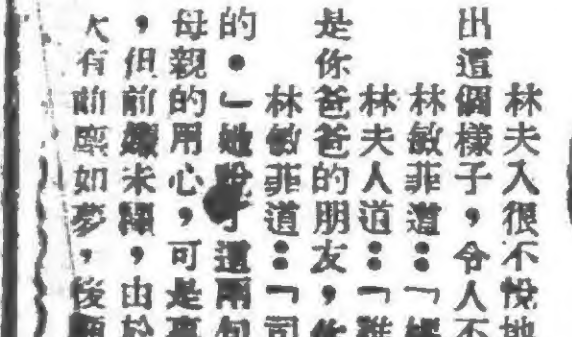 林夫人很不悅地
出這個樣子，令人不
林敏菲道：「
林夫人道：「誰
是你爸爸的朋友，你
林敏菲道：「司
的。」她說了這兩句
母親的用心，可是
，但前嫌未歸，由於
大有前塵如夢，後